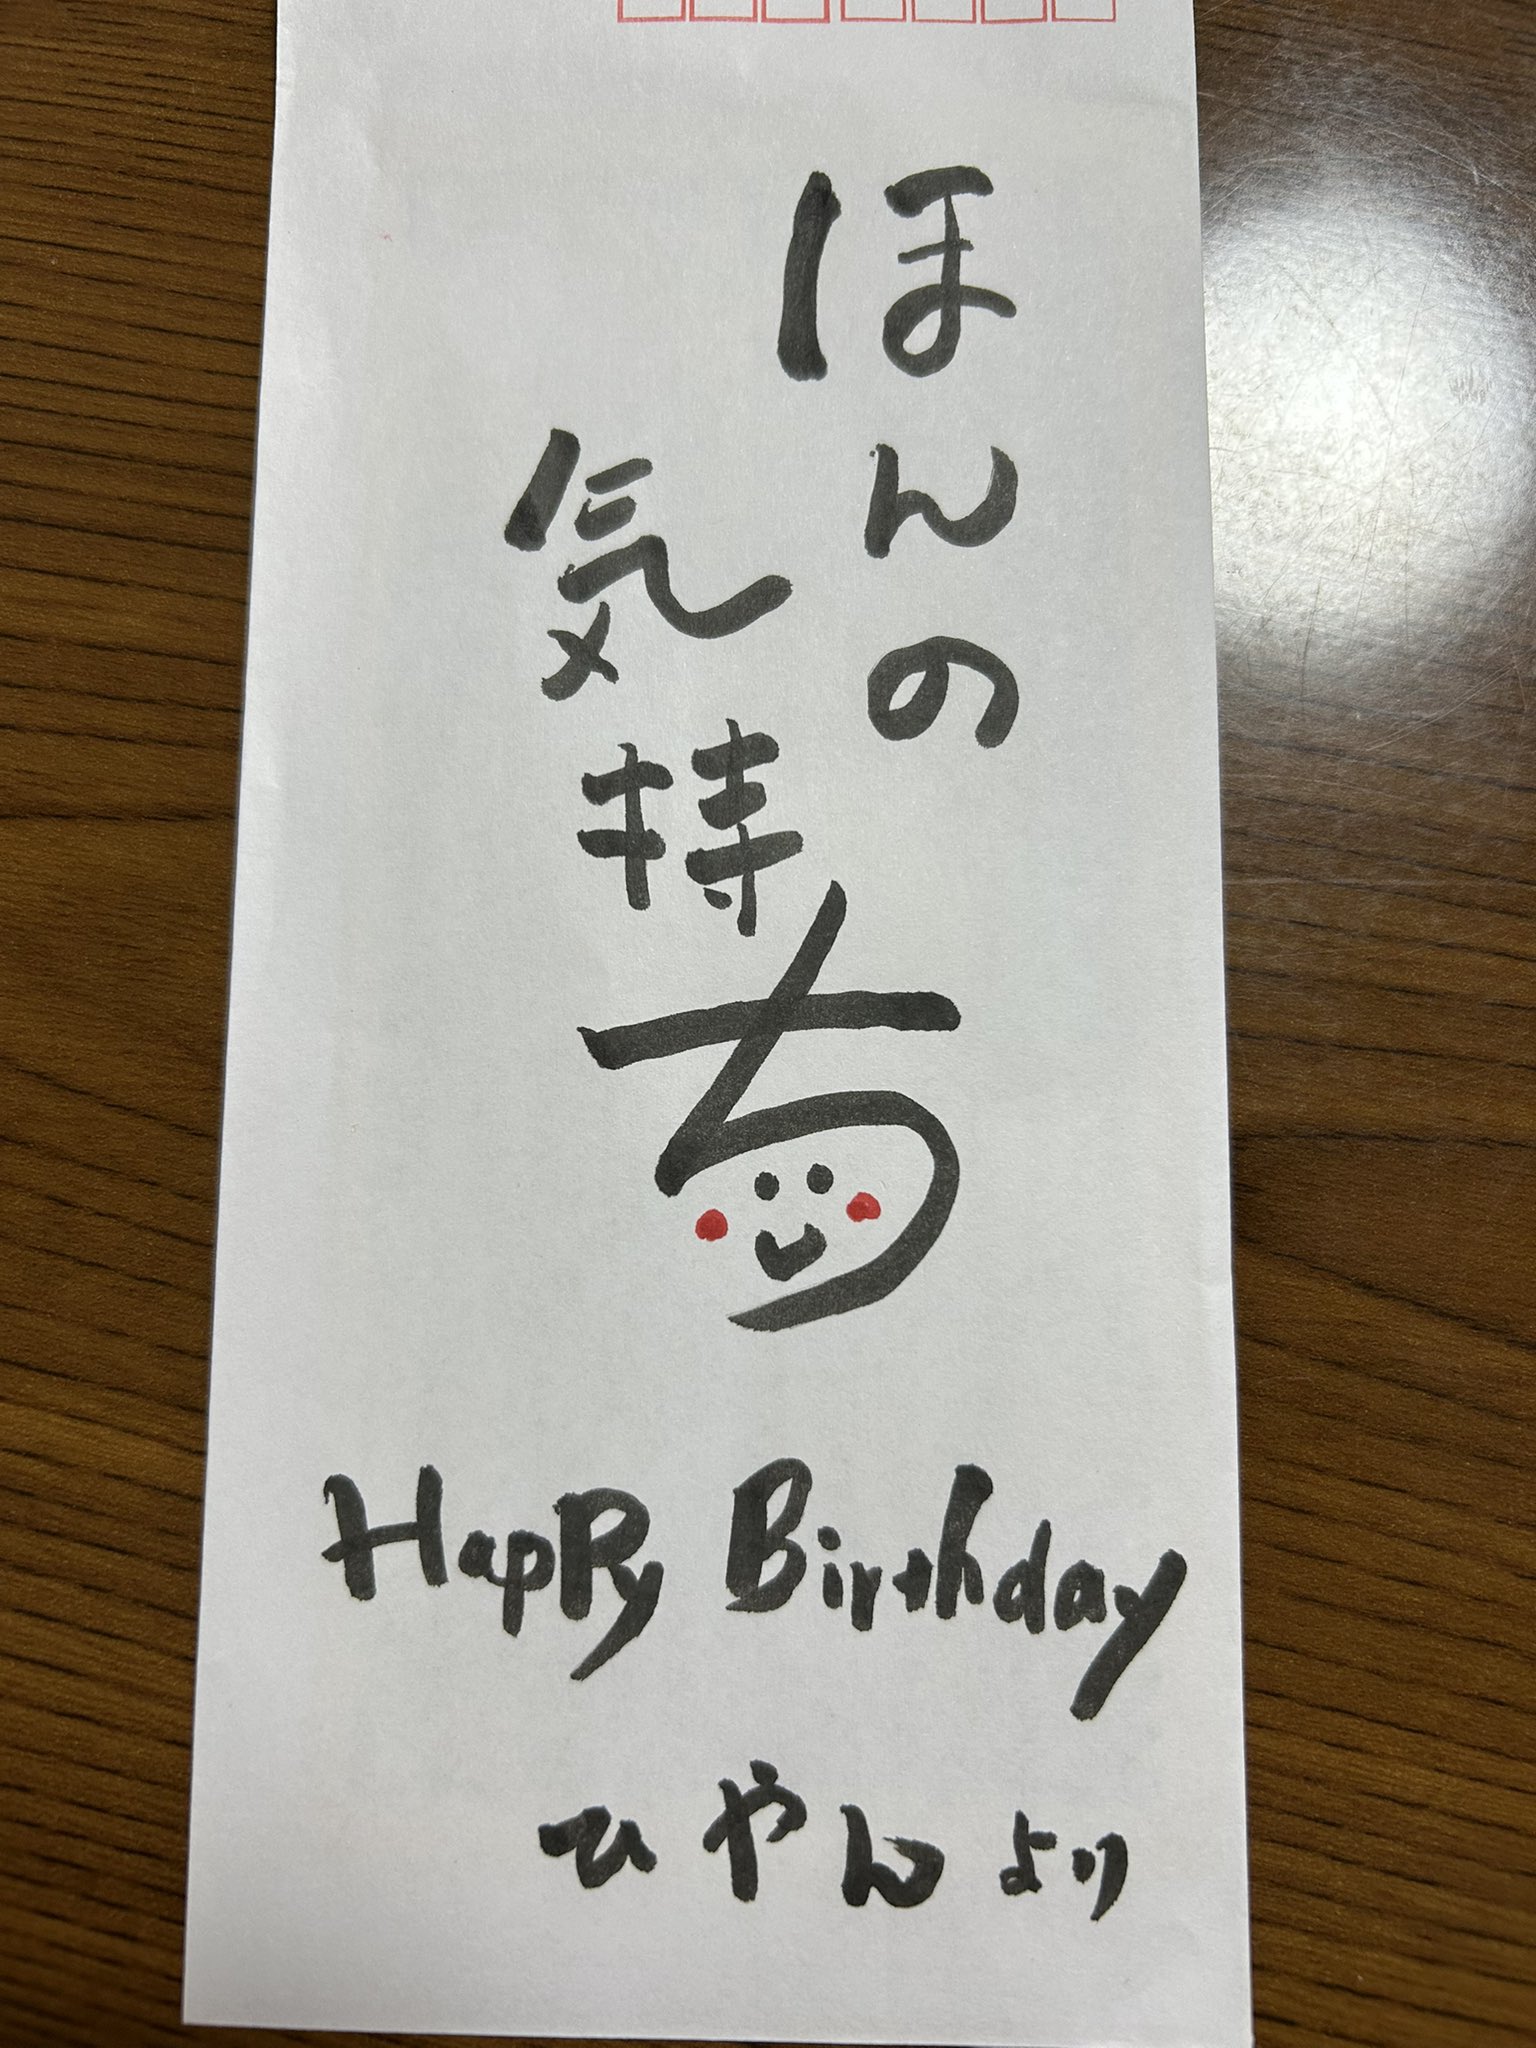 ほんの
気持ち
HapPy Birthday
ひやんより